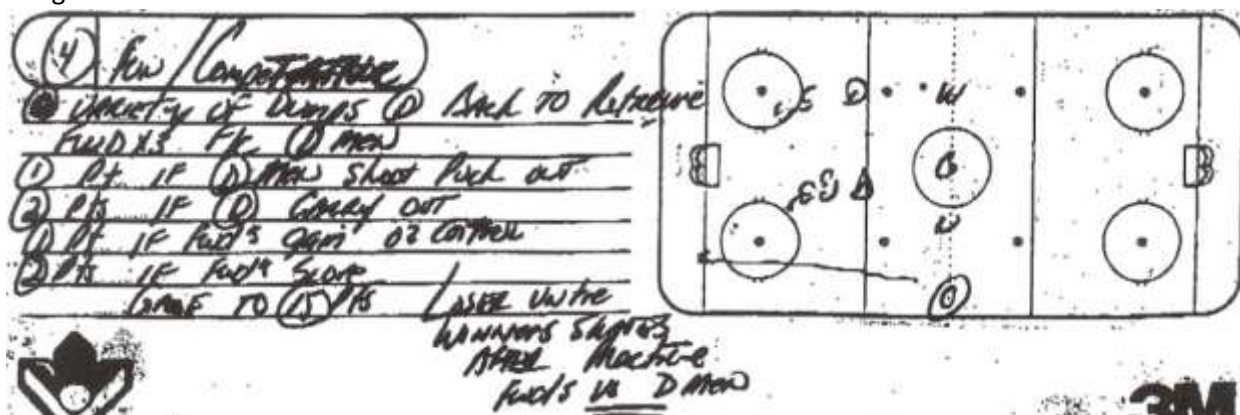 4 Fun / Competitive
Variety of Dumps D Back to Retrieve
FWD X3 FK D men
1 Pt IF D Men Shoot Puck out
2 Pts IF D Carry out
1 Pt IF Fwd's gain OZ Control
2 Pts IF Fwd's Score
Game to 15 Pts
Loser untie
Winners Skates
After Practice
Fwd's vs D Men
W
D
C
W
D
3M